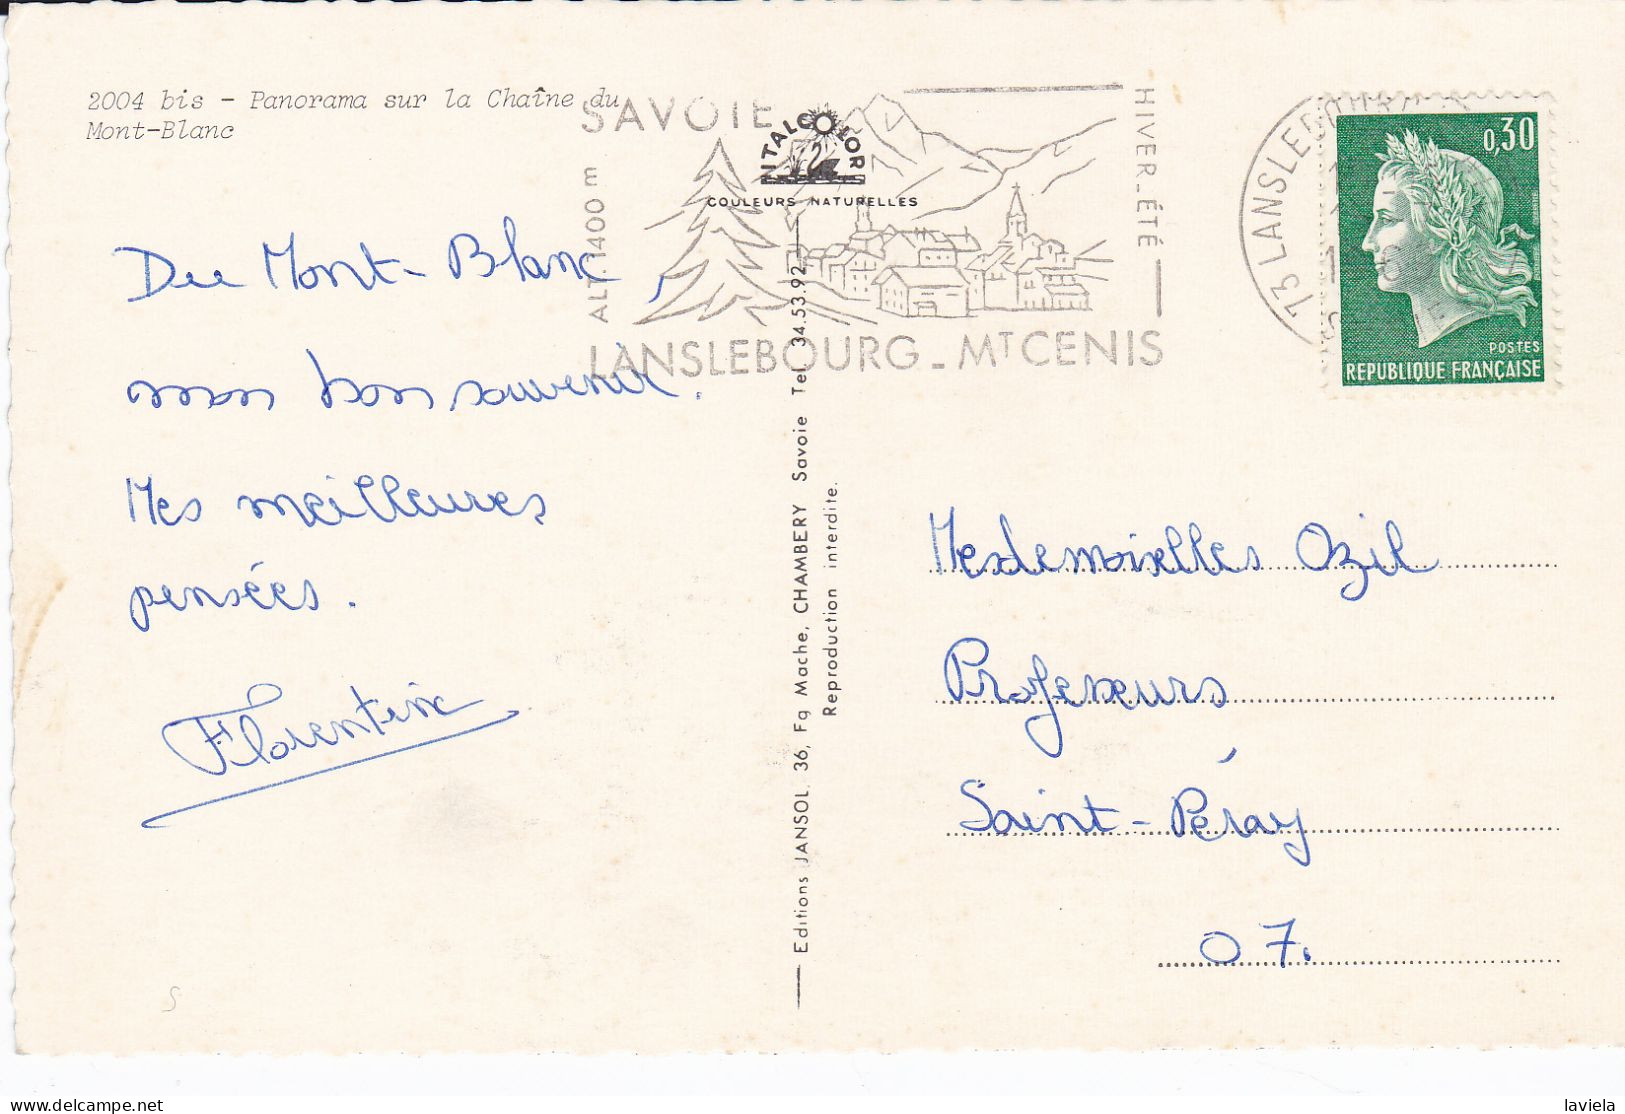 2004 bis - Panorama sur la Chaîne du
Mont-Blanc
SAVOIE
ALT. 1400 m
HIVER_ÉTÉ
LANSLEBOURG_MT CENIS
VITALCOLOR
COULEURS NATURELLES
73 LANSLEBOURG
0,30
POSTES
REPUBLIQUE FRANÇAISE
Du Mont-Blanc,
mon bon souvenir.
Mes meilleures
pensées.
Florentine
Editions JANSOL. 36, Fg Mache, CHAMBERY Savoie Tel. 34.53.92
Reproduction interdite.
Mesdemoiselles Ozil
Professeurs
Saint-Péray
07.
delcampe.net
laviela